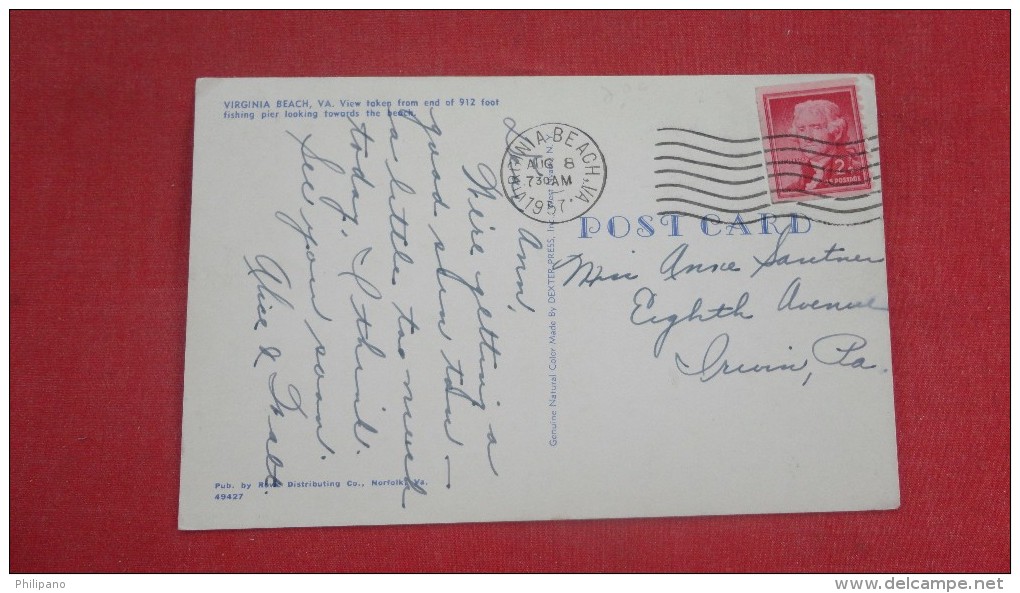 VIRGINIA BEACH, VA. View taken from end of 912 foot
fishing pier looking towards the beach.
Ann,
We're getting a
good sun tan —
a little too much
today, I think.
See you soon.
Alice & Walt.
Pub. by Distributing Co., Norfolk, Va.
49427
Genuine Natural Color Made By DEXTER PRESS, Inc.
VIRGINIA BEACH, VA.
AUG 8
730AM
1957
2¢
U.S. POSTAGE
POST CARD
Miss Anne Santner
Eighth Avenue
Irwin, Pa.
Philipano
www.delcampe.net